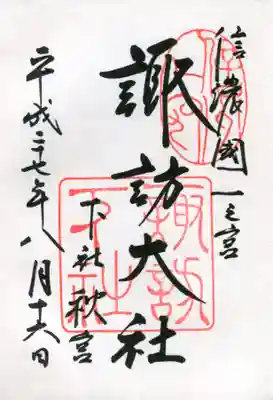 信濃國一之宮
諏訪大社
下社秋宮
平成二十七年八月十六日